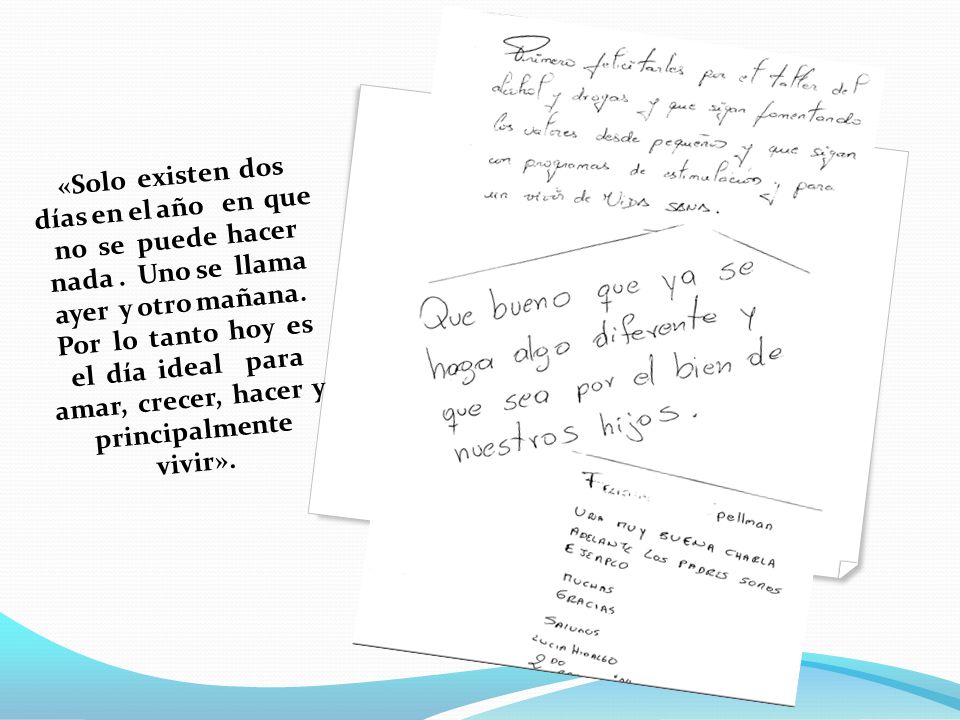 «Solo existen dos
días en el año en que
no se puede hacer
nada . Uno se llama
ayer y otro mañana.
Por lo tanto hoy es
el día ideal para
amar, crecer, hacer y
principalmente
vivir».
Primero felicitarles por el taller del
alcohol y drogas y que sigan fomentando
los valores desde pequeños y que sigan
con programas de estimulación y para
un vivir de VIDA SANA.
Que bueno que ya se
haga algo diferente y
que sea por el bien de
nuestros hijos.
pellman
UNA MUY BUENA CHARLA
ADELANTE LOS PADRES SOMOS
EJEMPLO
MUCHAS
GRACIAS
SALUDOS
LUCIA HIDALGO
2 DO